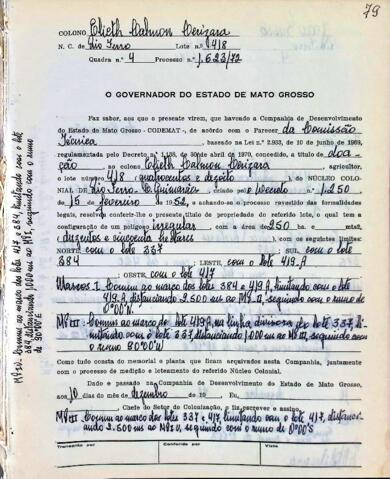 79
COLONO Elieth Dalmon Cerizara
N. C. de Rio Ferro Lote n.º 418
Quadra n.º 4 Processo n.º 1.623/72
O GOVERNADOR DO ESTADO DE MATO GROSSO
Faz saber, aos que o presente virem, que havendo a Companhia de Desenvolvimento
do Estado de Mato Grosso - CODEMAT -, de acôrdo com o Parecer da Comissão
Técnica, baseado na Lei n.º 2.933, de 10 de junho de 1969,
regulamentada pelo Decreto n.º 1.138, de 30 de abril de 1970, concedido, a título de doa-
ção ao colono Elieth Dalmon Cerizara, agricultor,
o lote número 418 (quatrocentos e dezoito), do NÚCLEO COLO-
NIAL DE Rio Ferro - C. Guimarães criado pelo Decreto n.º 1.250
de 15 de fevereiro 1952, e achando-se o processo revestido das formalidades
legais, resolve conferir-lhe o presente título de propriedade do referido lote, o qual tem a
configuração de um polígono irregular com a área de 250 ha. e -
(duzentos e cincoenta hectares), com os seguintes limites:
NORTE com o lote 337; SUL, com o lote
384; LESTE, com o lote 419.A
; OESTE, com o lote 417
Marcos I. Comum ao março dos lotes 384 e 419.A, limitando com o lote
419.A, distanciando 2.500 ms ao MºII, seguindo com o rumo de
0º00'N.
MºII: Comum ao março do lote 419.A, na linha divisoria do lote 337, li-
mitando com o lote 337, distanciando 1.000 ms ao MºIII, seguindo com
o rumo 90º00'
Como tudo consta do memorial e planta que ficam arquivados nesta Companhia, juntamente
com o processo de medição e loteamento do referido Núcleo Colonial.
Dado e passado na Companhia de Desenvolvimento do Estado de Mato Grosso,
aos 10 dias do mês de dezembro de 19
Eu,
Chefe do Setor de Colonização, o fiz escrever e assino.
MºIII: Comum ao março dos lotes 337 e 417, limitando com o lote 417, distan-
2.500 ms ao MºIV, seguindo com o rumo de 0º00'S
Transcrito por Conferido por Visto
MºIV: Comum ao março dos lotes 417 e 384, limitando com o lote
384, distanciando 1.000 ms ao MºI, seguindo com o rumo
de 90º00'